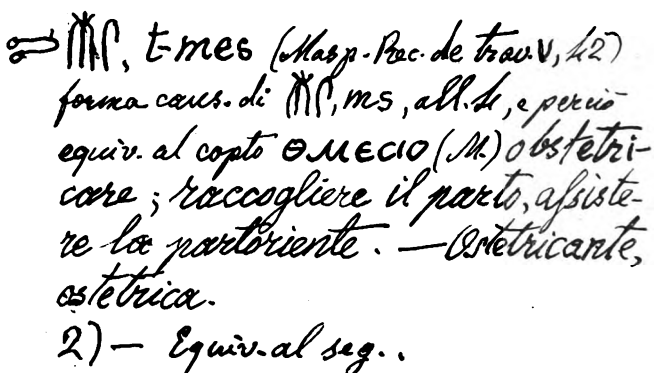 𓍿𓄟𓋴, t-mes (Masp. Rec. de trav. V, 42)
forma caus. di 𓄟𓋴, ms, all. 4, e perciò
equiv. al copto ⲑⲙⲉⲥⲓⲟ (M.) obstetri-
care; raccogliere il parto, assiste-
re la partoriente. — Ostetricante,
ostetrica.
2) — Equiv. al seg..